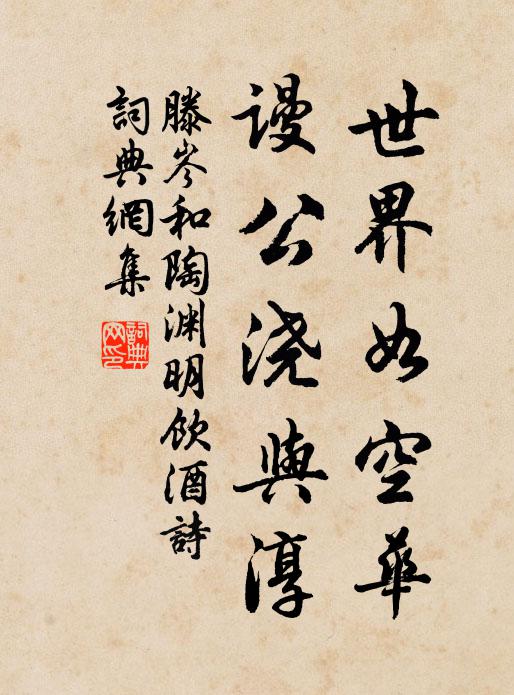 世界如空華
谩公浇與淳
滕岑和陶渊明饮酒詩
詞典網集
詞典網印